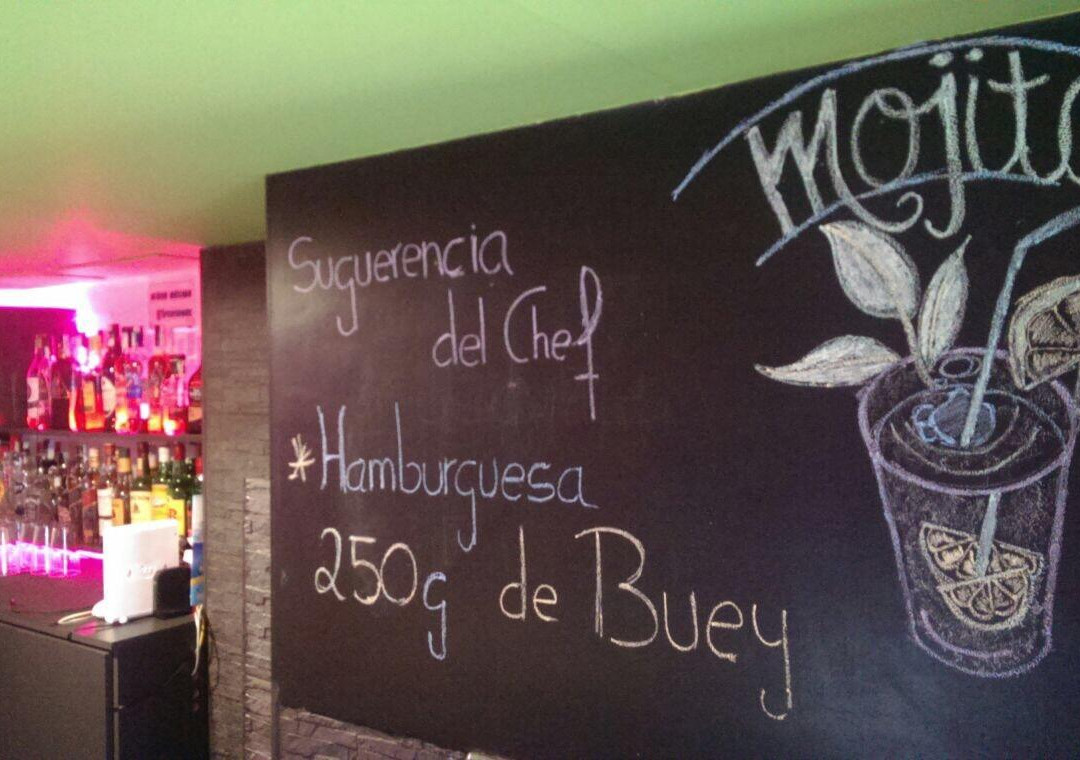 Mojito
Suguerencia
del Chef
*Hamburguesa
250g de Buey